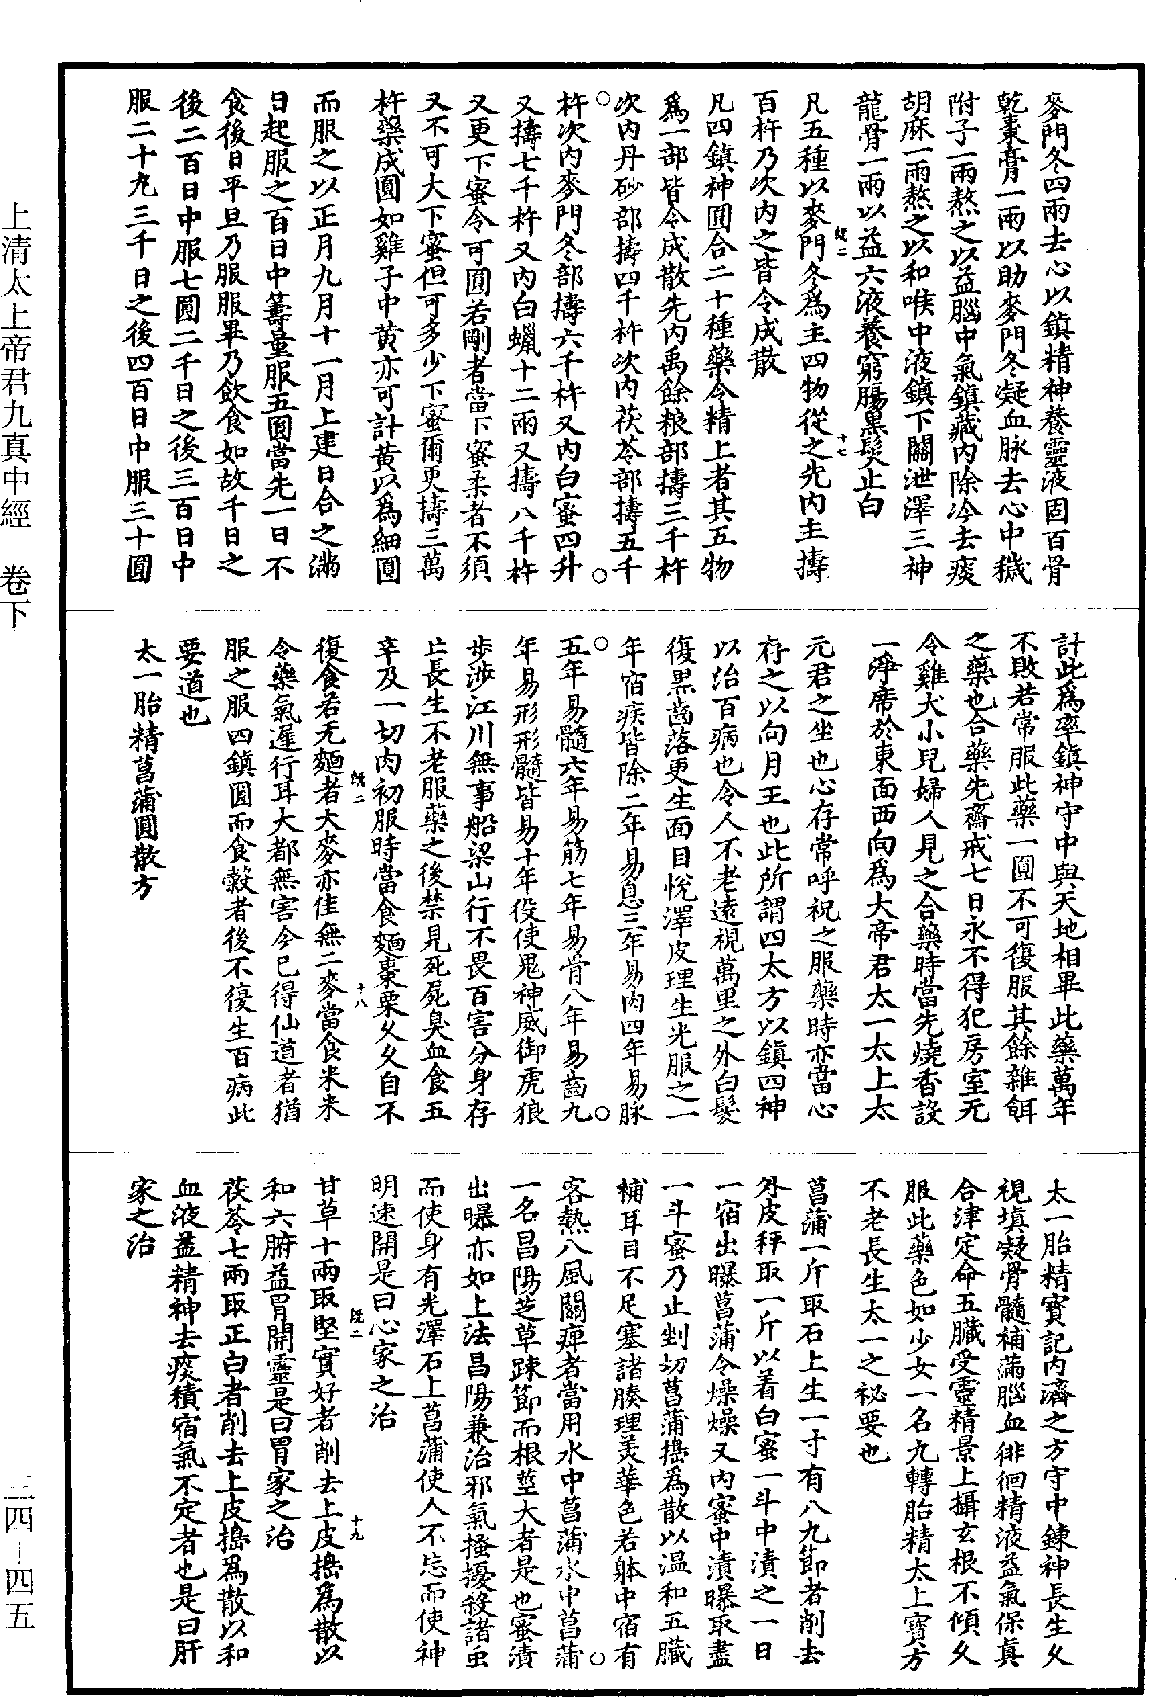 麥門冬四兩去心以鎮精神養靈液固百骨
乾棗膏一兩以助麥門冬凝血脉去心中穢
附子一兩熬之以益腦中氣鎮藏內除冷去痰
胡麻一兩熬之以和喉中液鎮下關泄澤三神
龍骨一兩以益六液養窮腸黑髮止白
凡五種以麥門冬爲主四物從之先內主擣
百杵乃次內之皆令成散
凡四鎮神圓合二十種藥令精上者其五物
爲一部皆令成散先內禹餘粮部擣三千杵
次內丹砂部擣四千杵次內茯苓部擣五千
杵次內麥門冬部擣六千杵又內白蜜四升
又擣七千杵又內白蠟十二兩又擣八千杵
又更下蜜令可圓若剛者當下蜜柔者不須
又不可大下蜜但可多少下蜜爾更擣三萬
杵藥成圓如雞子中黃亦可計黃以爲細圓
而服之以正月九月十一月上建日合之滿
日起服之百日中籌量服五圓當先一日不
食後日平旦乃服服畢乃飲食如故千日之
後二百日中服七圓二千日之後三百日中
服二十九三千日之後四百日中服三十圓
計此爲率鎮神守中與天地相畢此藥萬年
不敗若常服此藥一圓不可復服其餘雜餌
之藥也合藥先齋戒七日永不得犯房室无
令雞犬小兒婦人見之合藥時當先燒香設
一淨席於東面西向爲大帝君太一太上太
元君之坐也心存常呼祝之服藥時亦當心
存之以向月王也此所謂四太方以鎮四神
以治百病也令人不老遠視萬里之外白髮
復黑齒落更生面目悅澤皮理生光服之一
年宿疾皆除二年易息三年易肉四年易脉
五年易髓六年易筋七年易骨八年易齒九
年易形形髓皆易十年役使鬼神威御虎狼
步涉江川無事船梁山行不畏百害分身存
亡長生不老服藥之後禁見死屍臭血食五
辛及一切肉初服時當食麵棗栗久久自不
復食若无麵者大麥亦佳無二麥當食米米
令藥氣遲行耳大都無害今已得仙道者猶
服之服四鎮圓而食穀者後不復生百病此
要道也
太一胎精菖蒲圓散方
太一胎精寶記內濟之方守中鍊神長生久
視填凝骨髓補滿腦血徘徊精液益氣保真
合津定命五臟受靈精景上攝玄根不傾久
服此藥色如少女一名九轉胎精太上寶方
不老長生太一之祕要也
菖蒲一斤取石上生一寸有八九節者削去
外皮秤取一斤以著白蜜一斗中漬之一日
一宿出曝菖蒲令燥燥又內蜜中漬曝取盡
一斗蜜乃止剉切菖蒲擣爲散以溫和五臟
補耳目不足塞諸腠理美華色若躰中宿有
客熱八風關痺者當用水中菖蒲水中菖蒲
一名昌陽芝草踈節而根莖大者是也蜜漬
出曝亦如上法昌陽兼治邪氣搔擾殺諸虫
而使身有光澤石上菖蒲使人不忘而使神
明速開是曰心家之治
甘草十兩取堅實好者削去上皮擣爲散以
和六腑益胃開靈是曰胃家之治
茯苓七兩取正白者削去上皮擣爲散以和
血液益精神去痰積宿氣不定者也是曰肝
家之治
上清太上帝君九真中經　卷下
三四—四五